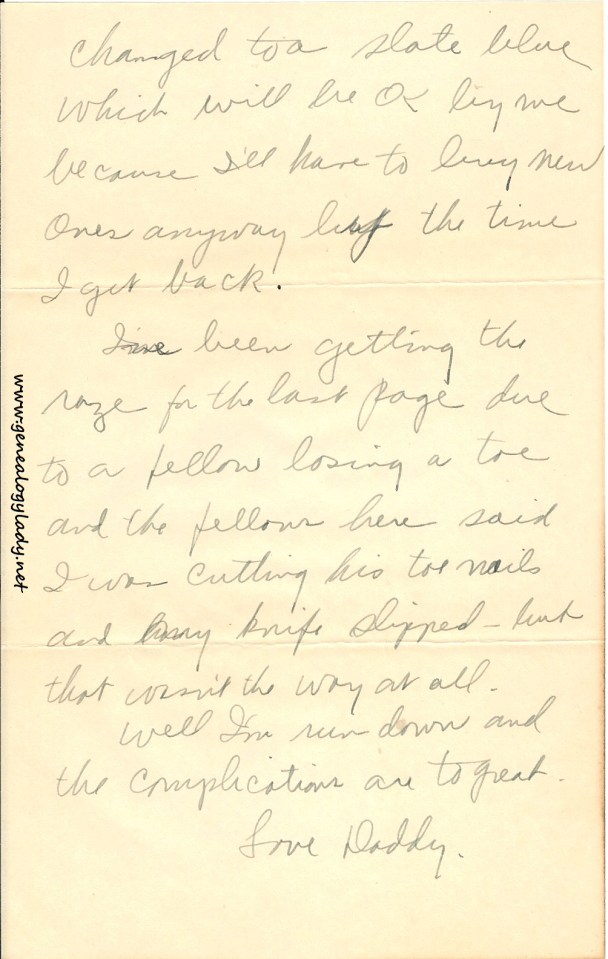 changed to a slate blue
which will be OK by me
because I'll have to buy new
ones anyway by the time
I get back.
I've been getting the
raze for the last page due
to a fellow losing a toe
and the fellows here said
I was cutting his toe nails
and my knife slipped – but
that wasn't the way at all.
Well I'm run down and
the complications are to great.
Love Daddy.
www.genealogylady.net